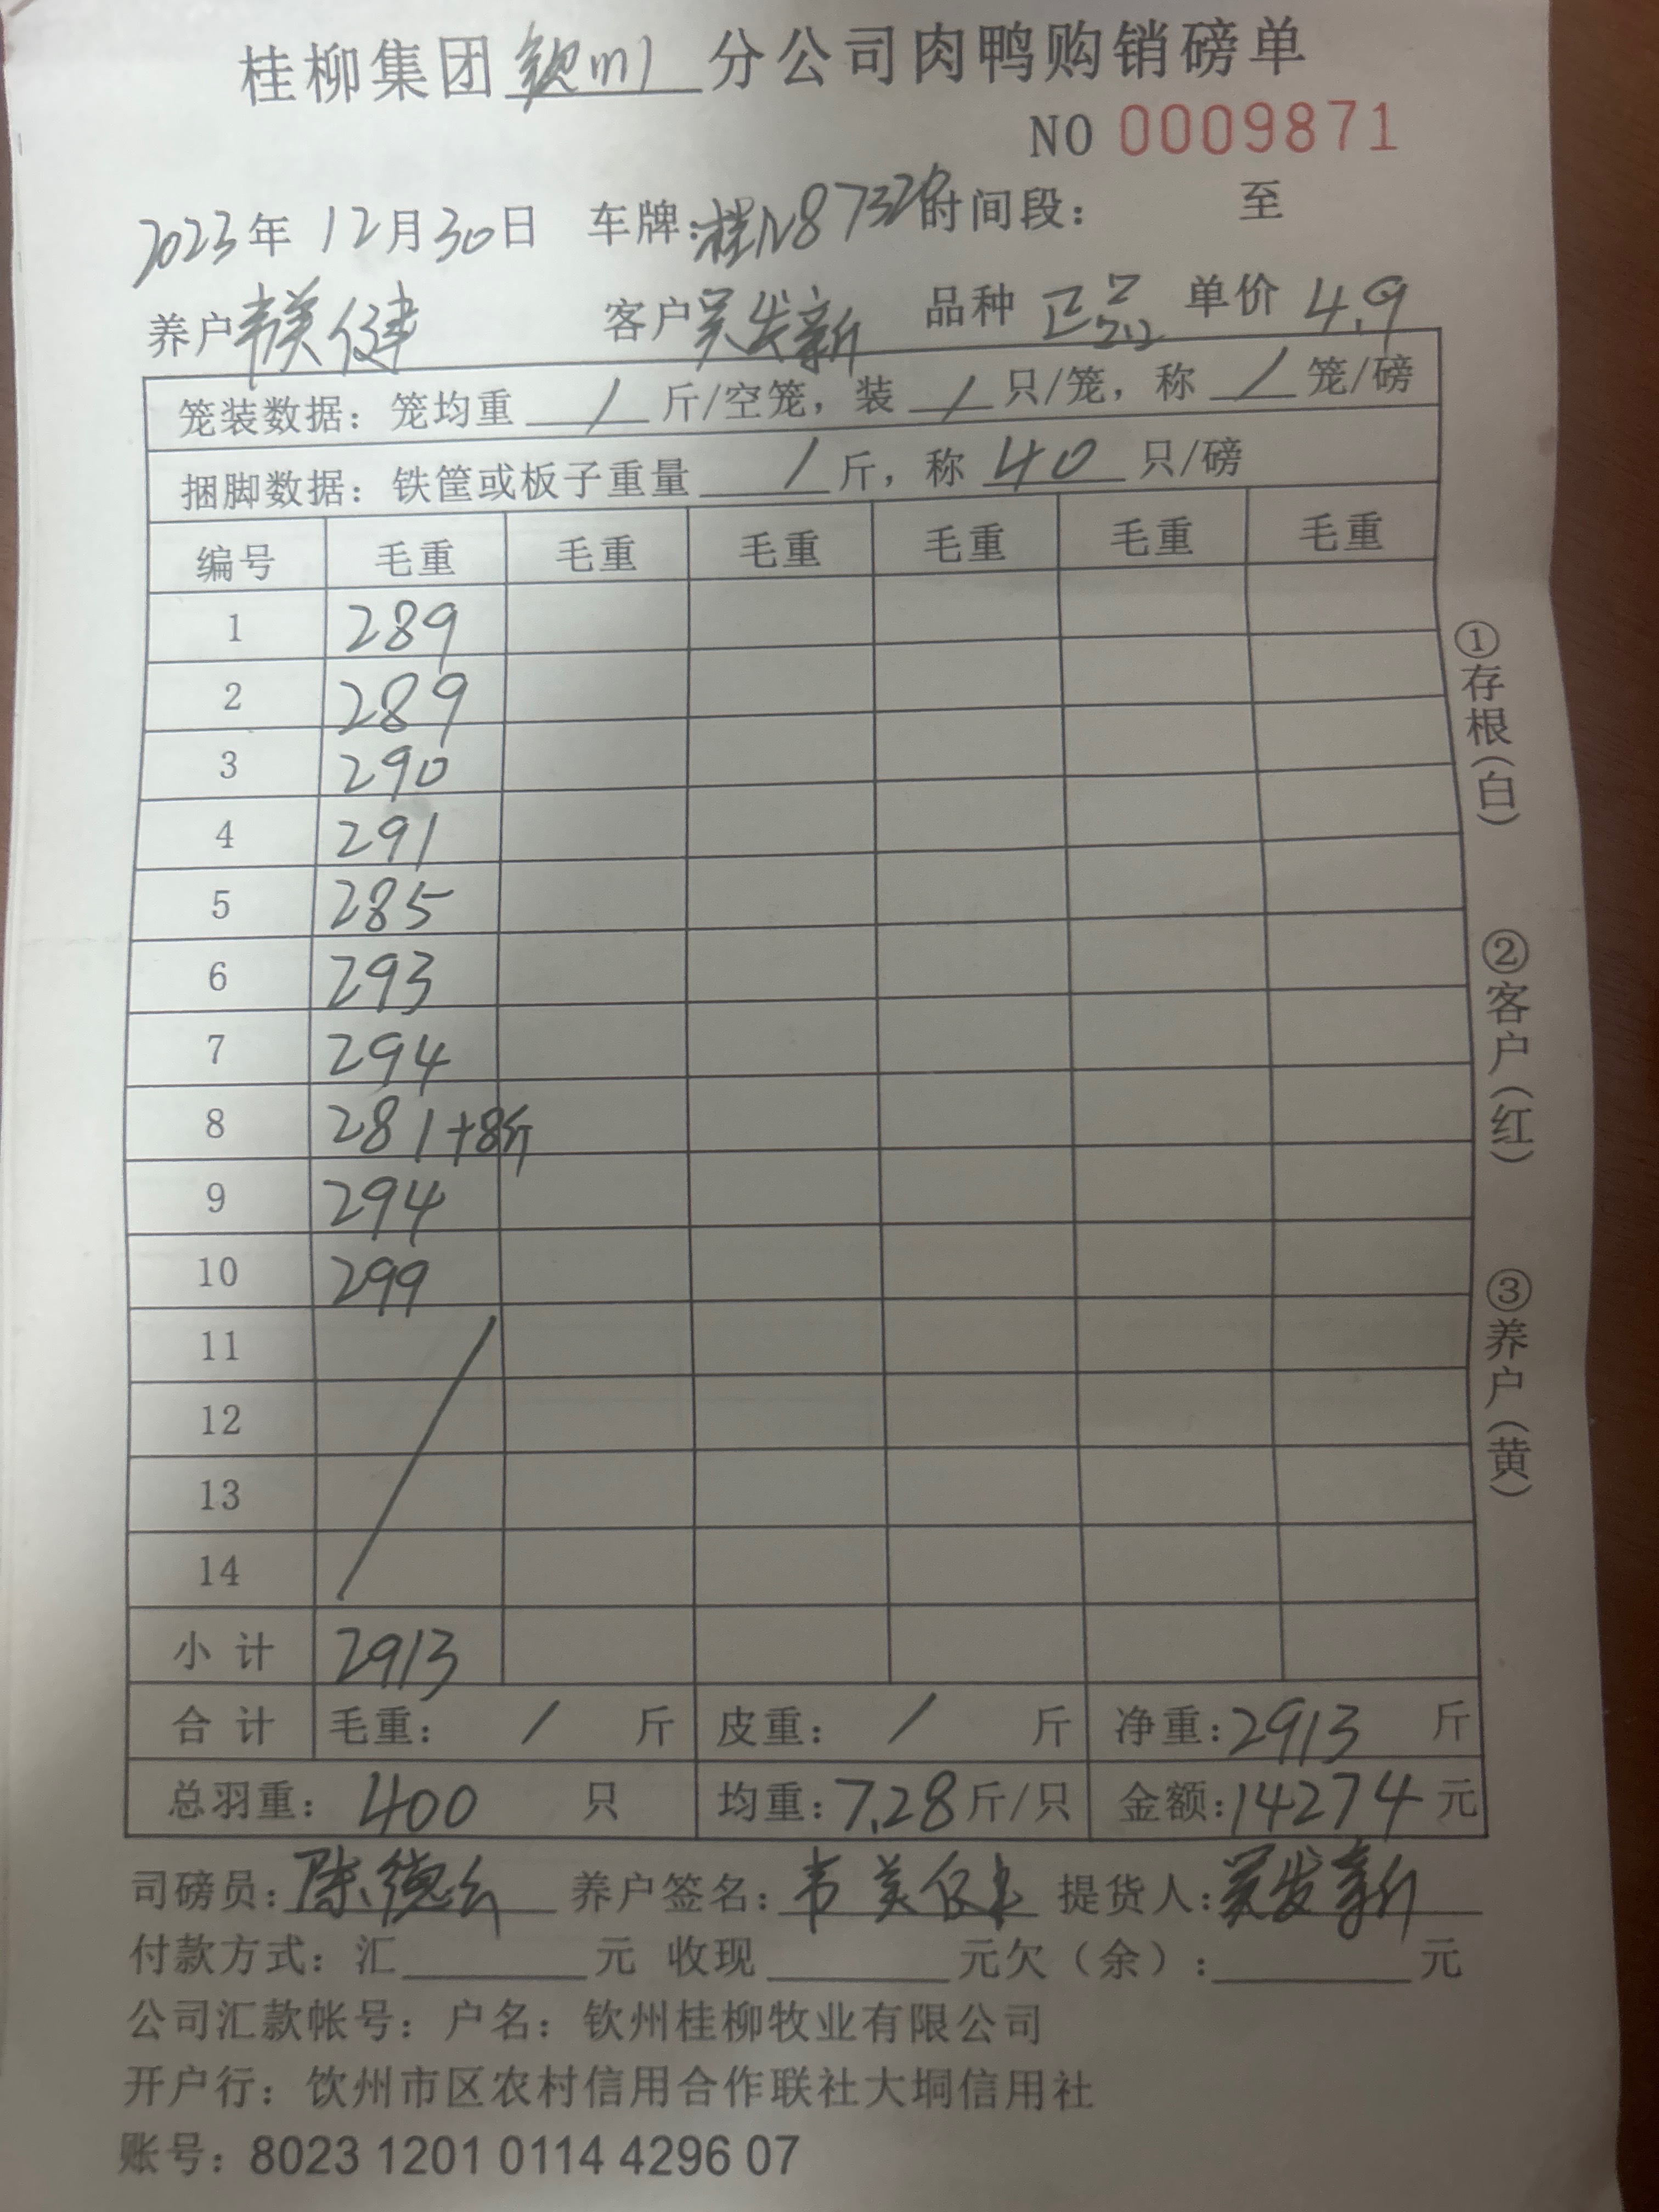 桂柳集团钦州分公司肉鸭购销磅单
NO 0009871
2023年 12月30日 车牌:桂N87329时间段: 至
养户韦美健 客户吴发新 品种 正品 单价 4.9
笼装数据: 笼均重 / 斤/空笼, 装 / 只/笼, 称 / 笼/磅
捆脚数据: 铁筐或板子重量 / 斤, 称 40 只/磅
编号 毛重 毛重 毛重 毛重 毛重 毛重
1 289
2 289
3 290
4 291
5 285
6 293
7 294
8 281+8斤
9 294
10 299
11
12
13
14
小计 2913
合计 毛重: / 斤 皮重: / 斤 净重:2913 斤
总羽重: 400 只 均重:7.28斤/只 金额:14274元
司磅员:陈德云 养户签名:韦美健 提货人:吴发新
付款方式: 汇 元 收现 元欠(余): 元
公司汇款帐号: 户名: 钦州桂柳牧业有限公司
开户行: 饮州市区农村信用合作联社大垌信用社
账号: 8023 1201 0114 4296 07
①存根(白) ②客户(红) ③养户(黄)